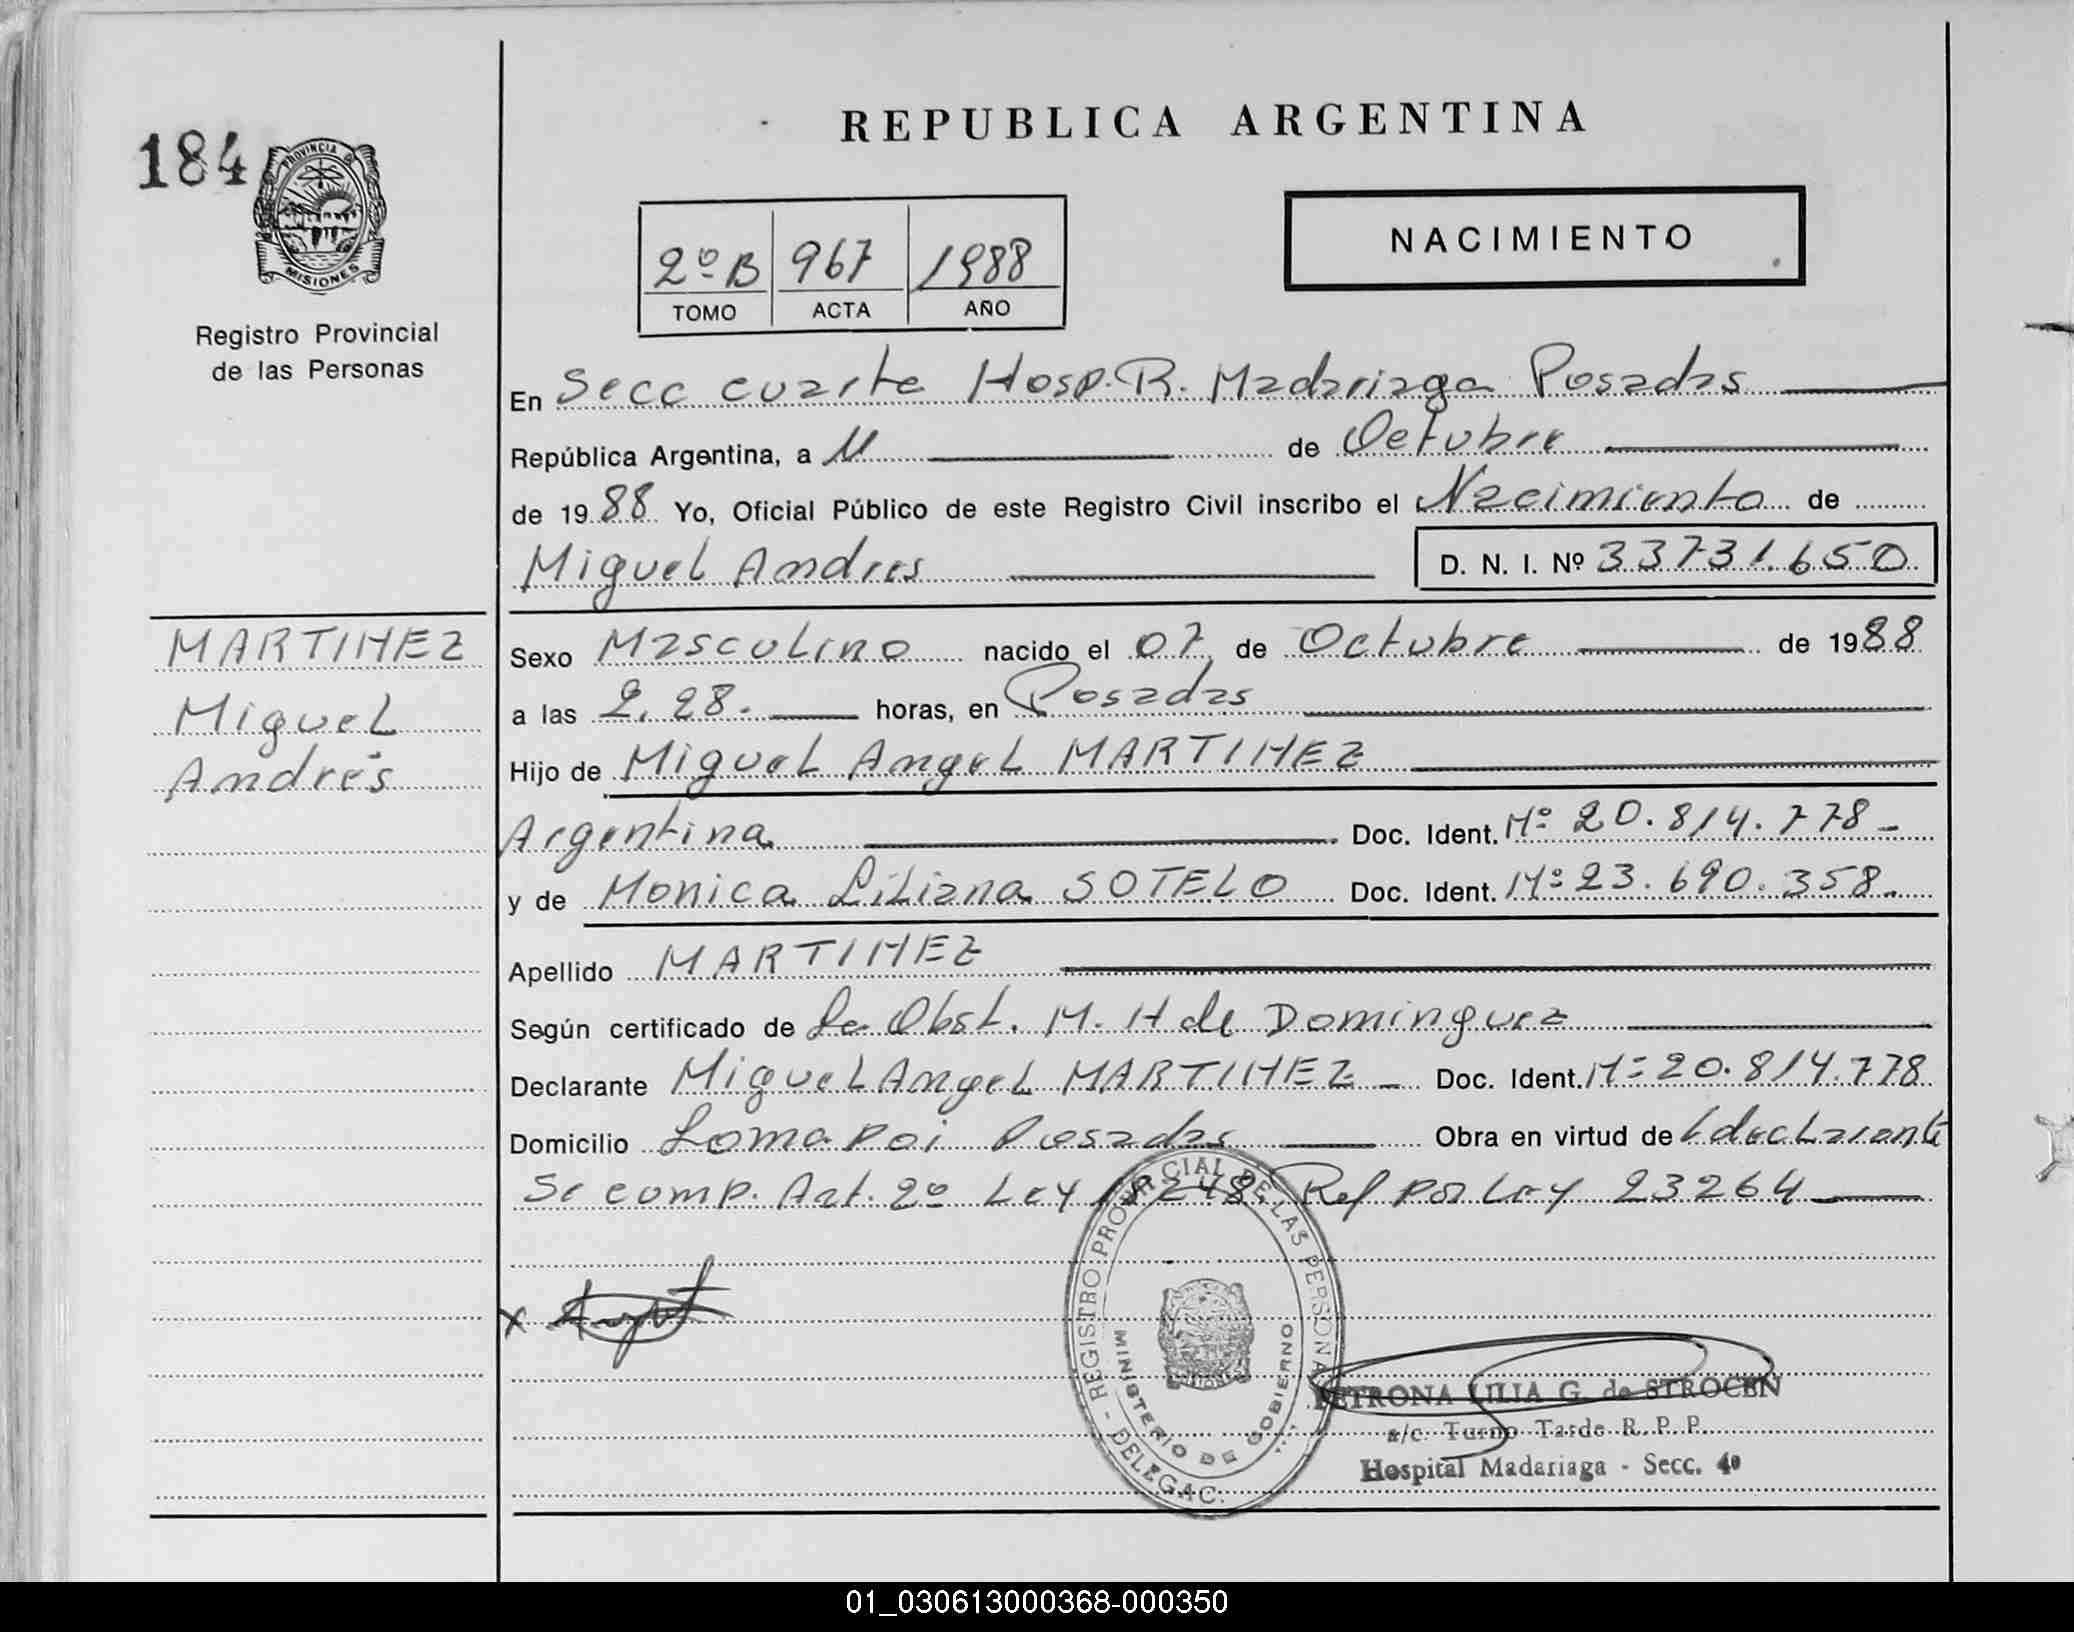 REPUBLICA ARGENTINA
184
PROVINCIA D
MISIONES
Registro Provincial
de las Personas
2º B 967 1988
TOMO ACTA AÑO
NACIMIENTO
En Secc cuarta Hosp. R. Madariaga Posadas
República Argentina, a 11 de Octubre
de 1988 Yo, Oficial Público de este Registro Civil inscribo el Nacimiento de
Miguel Andres D. N. I. Nº 33731.650
MARTINEZ
Miguel
Andrés
Sexo Masculino nacido el 07 de Octubre de 1988
a las 2,28. horas, en Posadas
Hijo de Miguel Angel MARTINEZ
Argentina Doc. Ident. Nº 20.814.778-
y de Monica Liliana SOTELO Doc. Ident. Nº 23.690.358.
Apellido MARTINEZ
Según certificado de La Obst. M. H de Dominguez
Declarante Miguel Angel MARTINEZ Doc. Ident. Nº 20.814.778
Domicilio Loma Poi Posadas Obra en virtud de declarante
Se comp. Art. 2º Ley 18248, Ref por Ley 23264
REGISTRO PROVINCIAL DE LAS PERSONAS
MINISTERIO DE GOBIERNO
DELEGAC.
PETRONA LILIA G. de STROCEN
a/c Turno Tarde R. P. P.
Hospital Madariaga - Secc. 4º
01_030613000368-000350